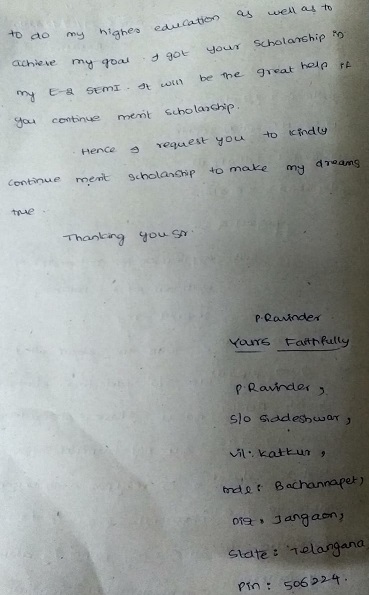 to do my higher education as well as to
achieve my goal. I got your scholarship in
my E-2 SEM1. It will be the great help if
you continue merit scholarship.
Hence I request you to kindly
continue merit scholarship to make my dreams
true.
Thanking you sir
P.Ravinder
Yours Faithfully
P.Ravinder,
S/o Siddeshwar,
vil: Katkur,
mdl: Bachannapet,
Dist: Jangaon,
State: Telangana,
Pin: 506224.